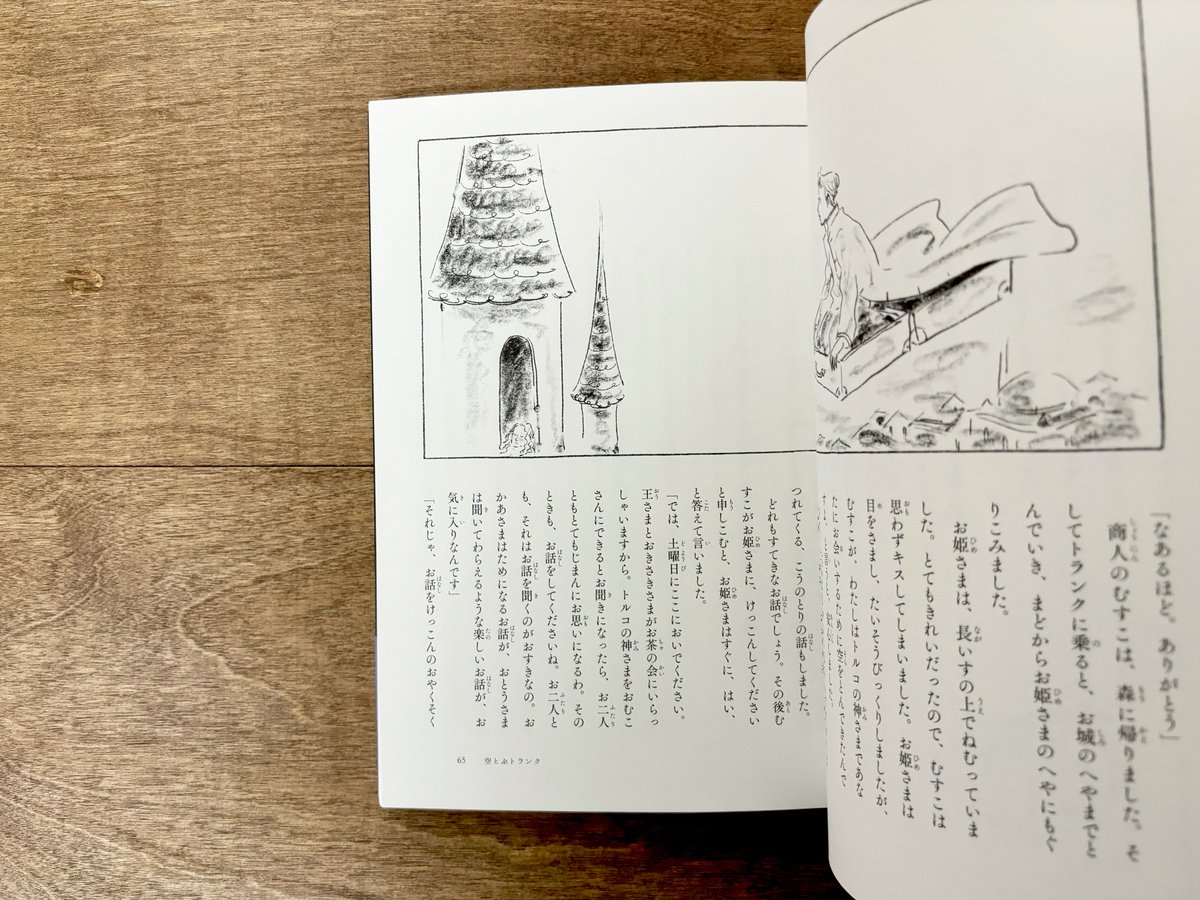 「なあるほど。ありがとう」
商人のむすこは、森に帰りました。そ
してトランクに乗ると、お城のへやまでと
んでいき、まどからお姫さまのへやにもぐ
りこみました。
お姫さまは、長いすの上でねむっていま
した。とてもきれいだったので、むすこは
思わずキスしてしまいました。お姫さまは
目をさまし、たいそうびっくりしましたが、
むすこが、わたしはトルコの神さまであな
たにお会いするために空をとんできたんで
つれてくる、こうのとりの話もしました。
どれもすてきなお話でしょう。その後む
すこがお姫さまに、けっこんしてください
と申しこむと、お姫さまはすぐに、はい、
と答えて言いました。
「では、土曜日にここにおいでください。
王さまとおきさきさまがお茶の会にいらっ
しゃいますから。トルコの神さまをおむこ
さんにできるとお聞きになったら、お二人
ともとてもじまんにお思いになるわ。その
ときも、お話をしてくださいね。お二人と
も、それはお話を聞くのがおすきなの。お
かあさまはためになるお話が、おとうさま
は聞いてわらえるような楽しいお話が、お
気に入りなんです」
「それじゃ、お話をけっこんのおやくそく
65 空とぶトランク